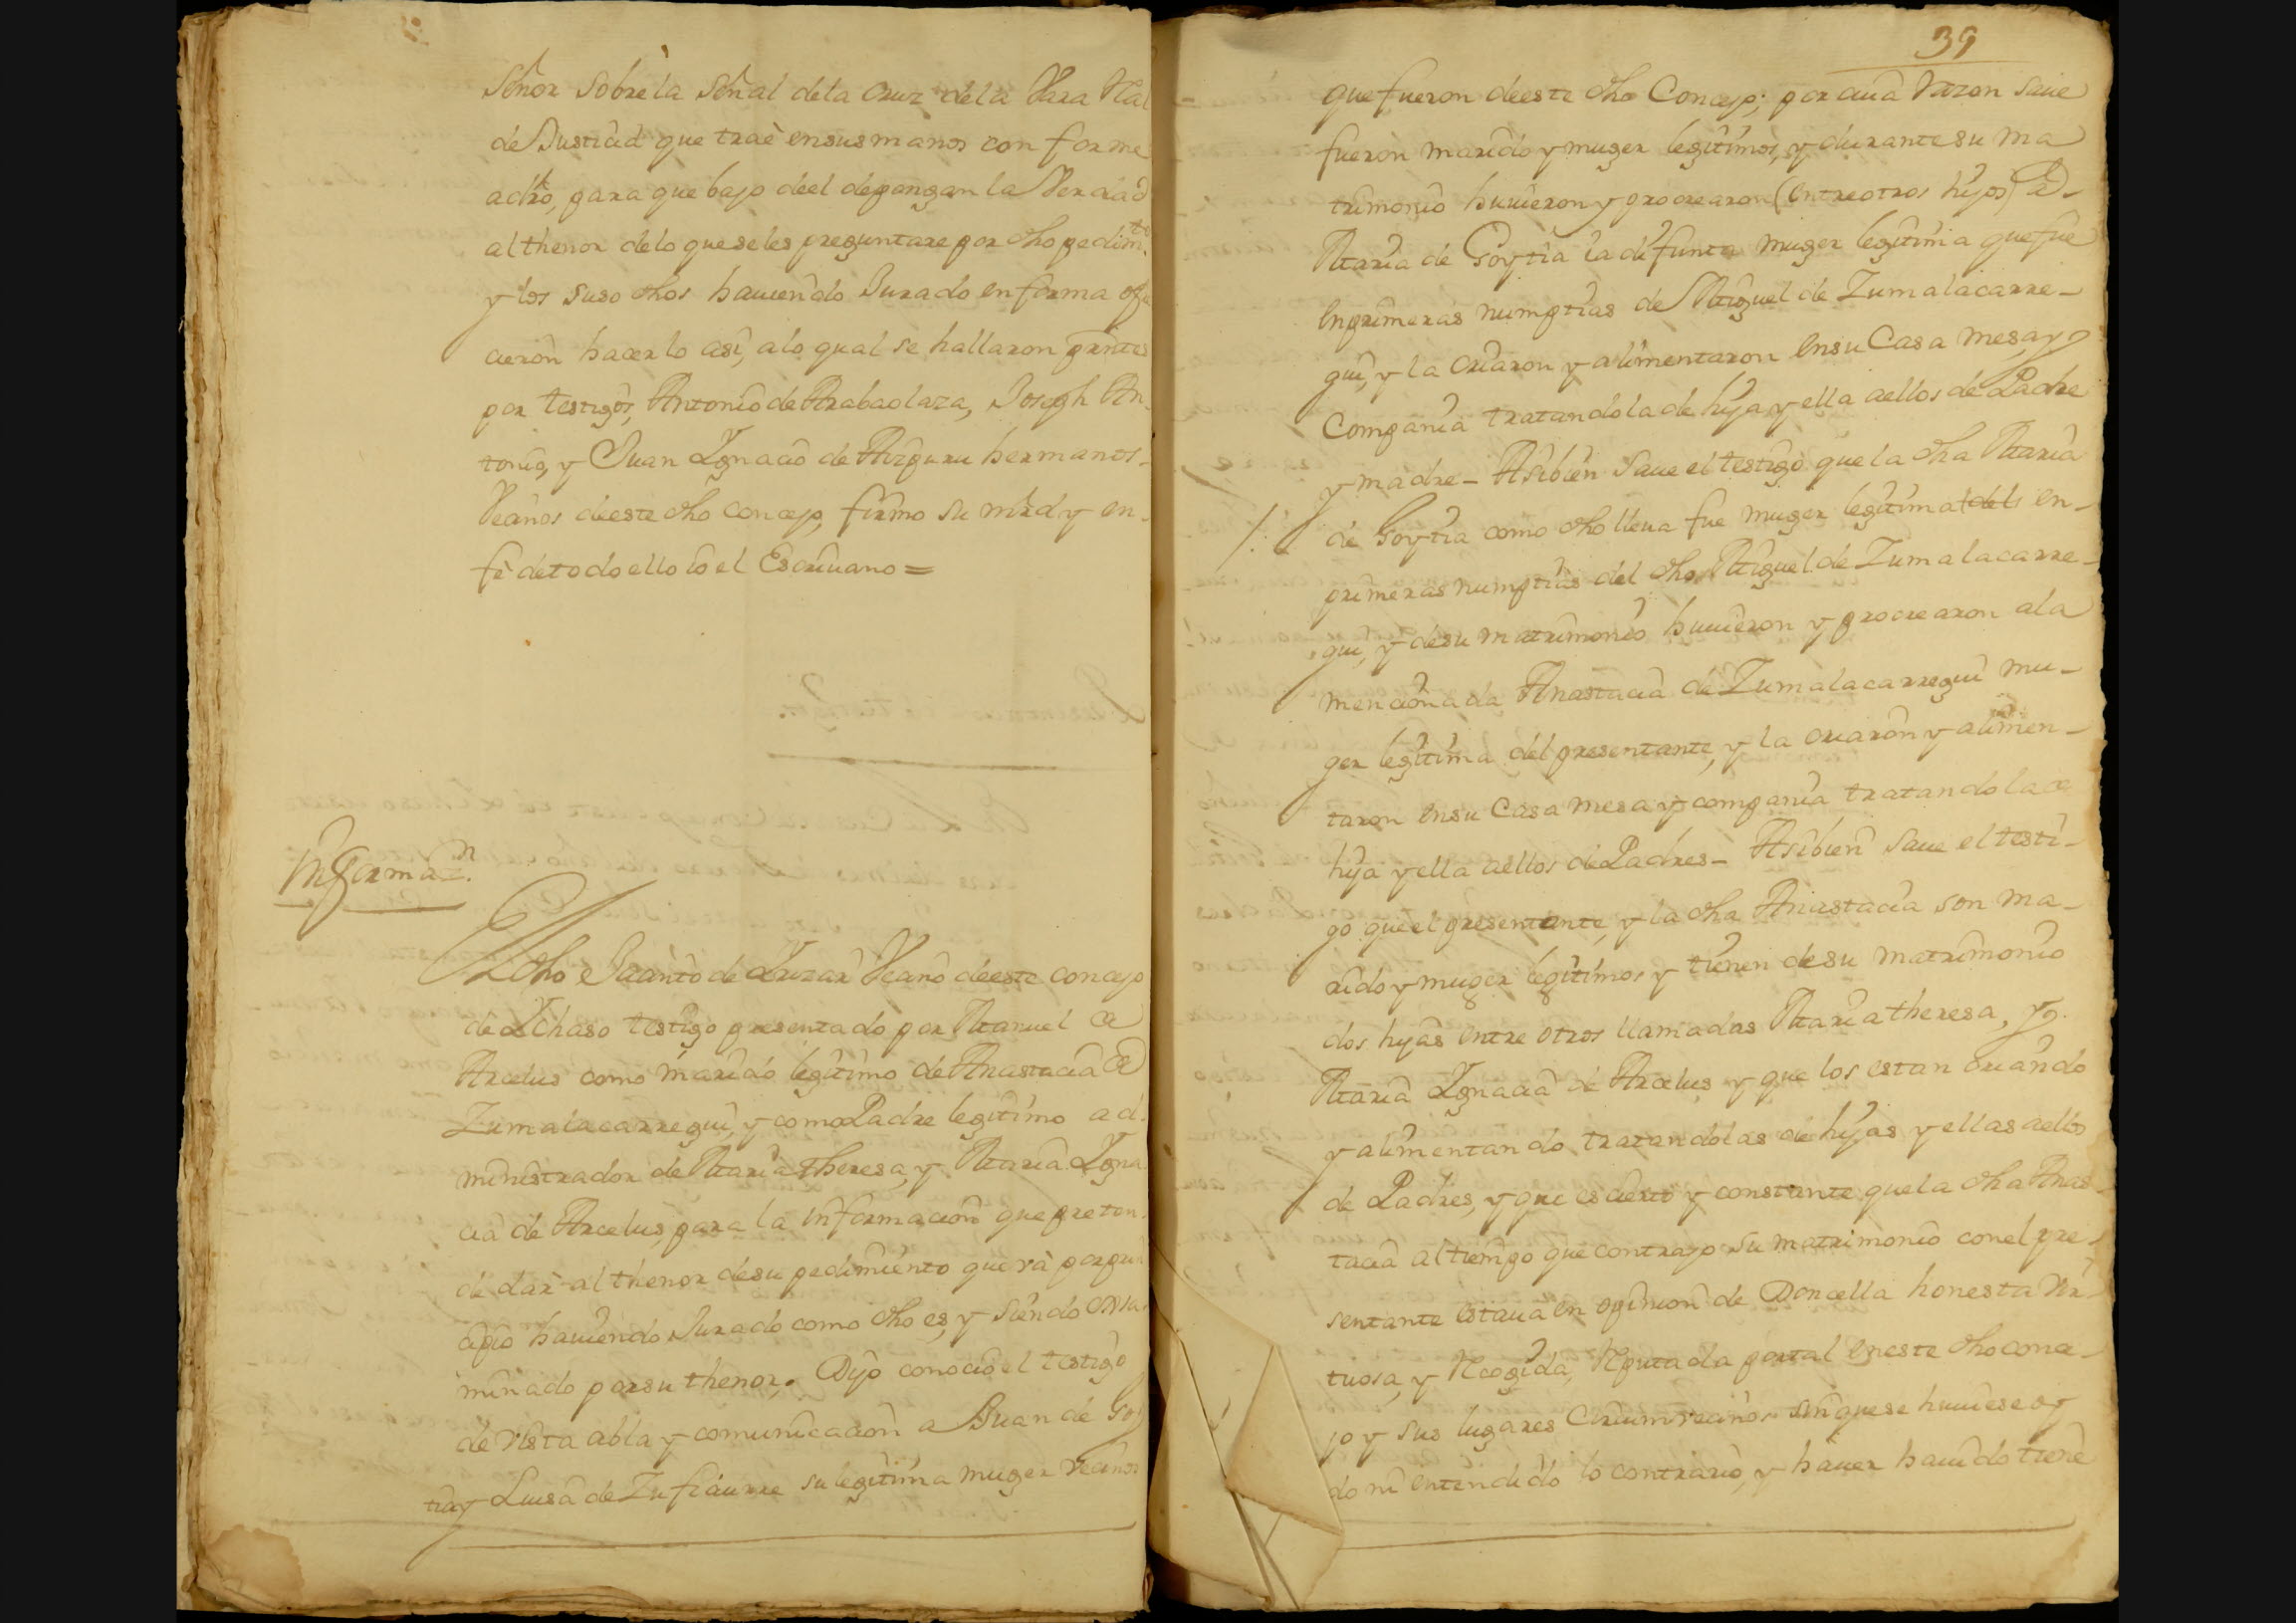 Señor sobre la señal de la Cruz de la Vara Rl
de Justicia que trae en sus manos conforme
a dro, para que bajo de el depongan la Verdad
al thenor de lo que se les preguntare por dho pedimto
y los suso dhos haviendo Jurado en forma ofre
cieron hacerlo asi, a lo qual se hallaron prntes
por testigos, Antonio de Arabaolaza, Joseph An-
tonio, y Juan Ygnacio de Aizpuru hermanos-
Vecinos de este dho concejo, firmo su mrd y en-
fe de todo ello io el Escrivano =
Informan.
El dho Jacinto de Luzar Vecino de este concejo
de Ychaso testigo presentado por Manuel de
Arcelus como marido legitimo de Anastacia de
Zumalacarregui, y como Padre legitimo ad-
ministrador de Maria theresa, y Maria Ygna
cia de Arcelus, para la informacion que preten-
de dar al thenor de su pedimiento que va por prin
cipio haviendo Jurado como dho es, y siendo exsa-
minado por su thenor. Dijo conocio el testigo
de vista abla y comunicacion a Juan de Goy
tia y Luisa de Zufiaurre su legitima muger vecinos
39
que fueron de este dho Concejo; por cuia razon save
fueron marido y muger legitimos, y durante su ma
trimonio huvieron y procrearon (entre otros hijos) a-
Maria de Goytia la difunta muger legitima que fue
en primeras numptias de Miguel de Zumalacarre-
gui, y la criaron y alimentaron en su Casa mesa, y
Compania tratandola de hija y ella a ellos de Padre
y madre - Asibien save el testigo que la dha Maria
de Goytia como dho lleva fue muger legitima del en-
primeras numptias del dho Miguel de Zumalacarre-
gui, y de su matrimonio huvieron y procrearon a la
mencionada Anastacia de Zumalacarregui mu-
ger legitima del presentante, y la criaron y alimen-
taron en su Casa mesa y compania tratandola de
hija y ella a ellos de Padres - Asibien save el testi-
go que el presentante, y la dha Anastacia son ma-
rido y muger legitimos y tienen de su matrimonio
dos hijas entre otros llamadas Maria theresa, y
Maria Ygnacia de Arcelus y que los estan criando
y alimentando tratandolas de hijas y ellas a ellos
de Padres, y que es cierto y constante que la dha Anas-
tacia al tiempo que contrajo su matrimonio con el pre-
sentante estava en opinion de Doncella honesta vir-
tuosa, y Recogida, Reputada por tal en este dho conce-
jo y sus lugares Circumvecinos sin que se huviese oy
do ni entendido lo contrario, y haver havido tiene